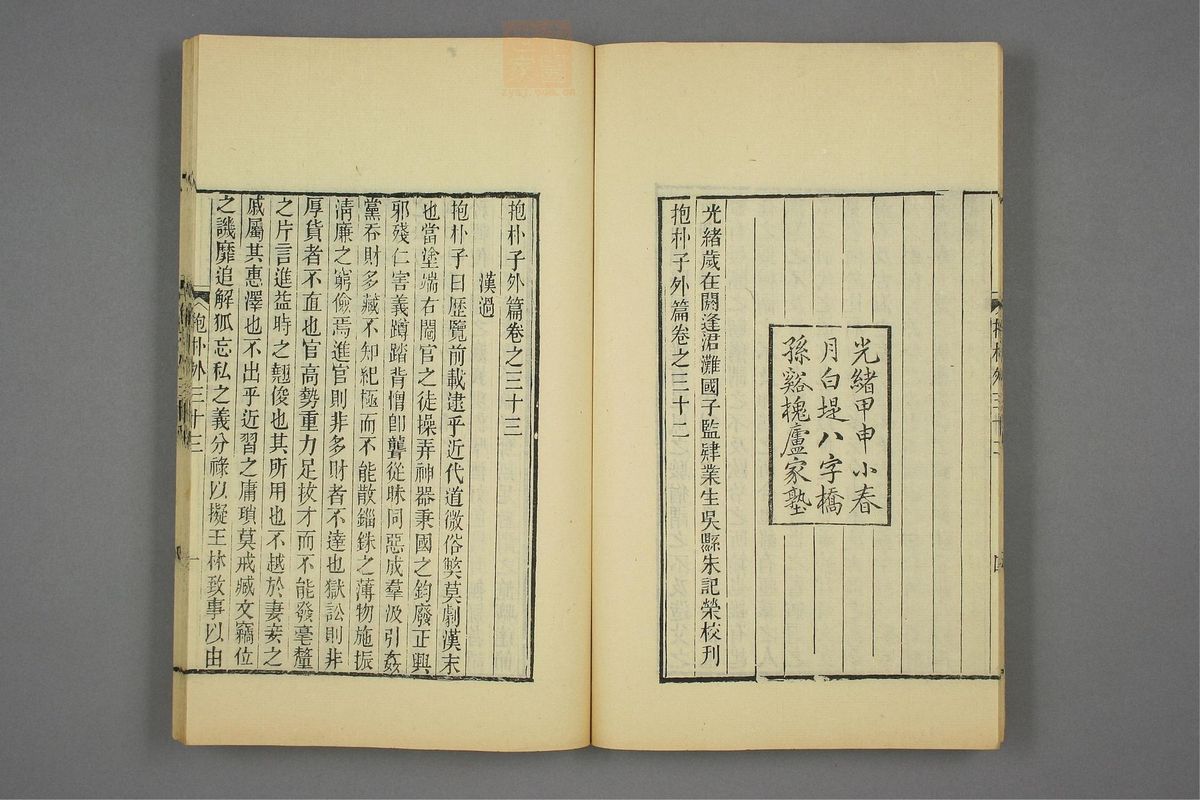 抱朴外三十二
四
光緒甲申小春
月白堤八字橋
孫谿槐廬家塾
光緒歲在閼逢涒灘國子監肄業生吳縣朱記榮校刊
抱朴子外篇卷之三十二
抱朴子外篇卷之三十三
漢過
抱朴子曰歷覽前載逮乎近代道微俗弊莫劇漢末
也當塗端右閹官之徒操弄神器秉國之鈞廢正興
邪殘仁害義蹲踏背憎卽聾從昧同惡成羣汲引姦
黨吞財多藏不知紀極而不能散錙銖之薄物施振
淸廉之窮儉焉進官則非多財者不達也獄訟則非
厚貨者不直也官高勢重力足拔才而不能發毫釐
之片言進益時之翹俊也其所用也不越於妻妾之
戚屬其惠澤也不出乎近習之庸瑣莫戒臧文竊位
之譏靡追解狐忘私之義分祿以擬王林致事以由
抱朴外三十三
一